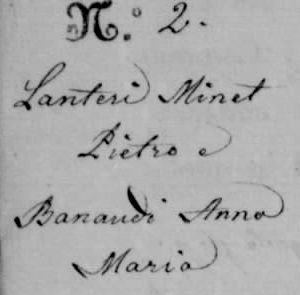 N.º 2.
Lanteri Minet
Pietro e
Banaudi Anna
Maria